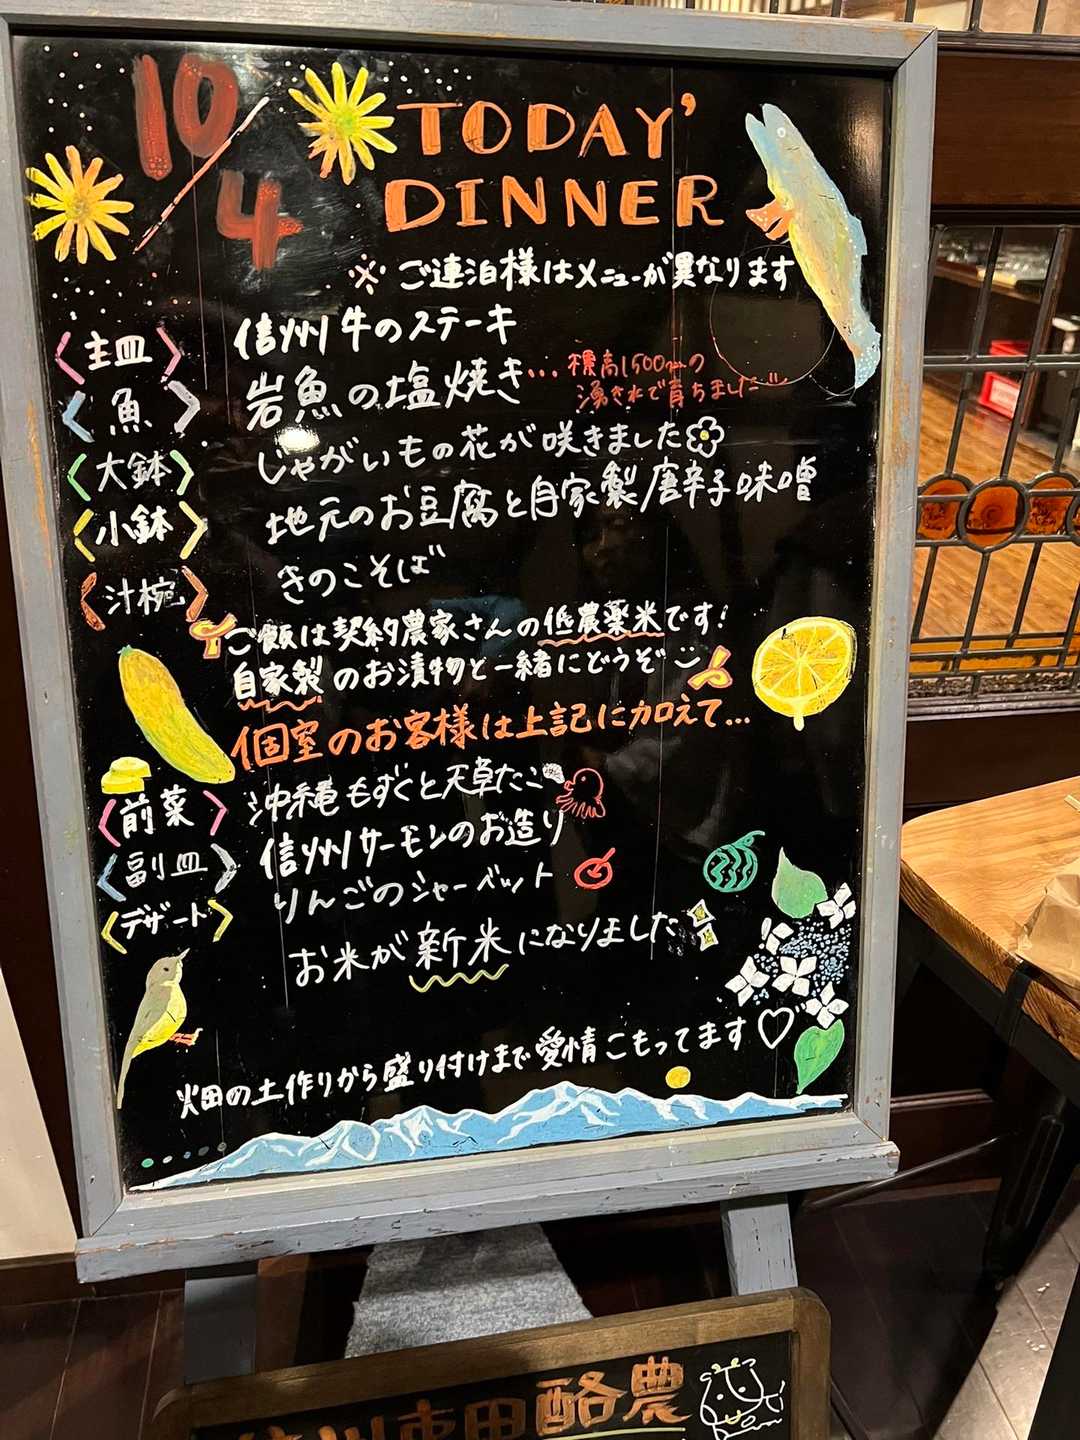 10/4
TODAY'
DINNER
※ご連泊様はメニューが異なります
〈主皿〉 信州牛のステーキ
〈魚〉 岩魚の塩焼き…標高1500mの
湧き水で育ちました
〈大鉢〉 じゃがいもの花が咲きました
〈小鉢〉 地元のお豆腐と自家製唐辛子味噌
〈汁椀〉 きのこそば
ご飯は契約農家さんの低農薬米です!
自家製のお漬物と一緒にどうぞ
個室のお客様は上記に加えて…
〈前菜〉 沖縄もずくと天草たこ
〈副皿〉 信州サーモンのお造り
〈デザート〉 りんごのシャーベット
お米が新米になりました
畑の土作りから盛り付けまで愛情こもってます♡
信州市田酪農